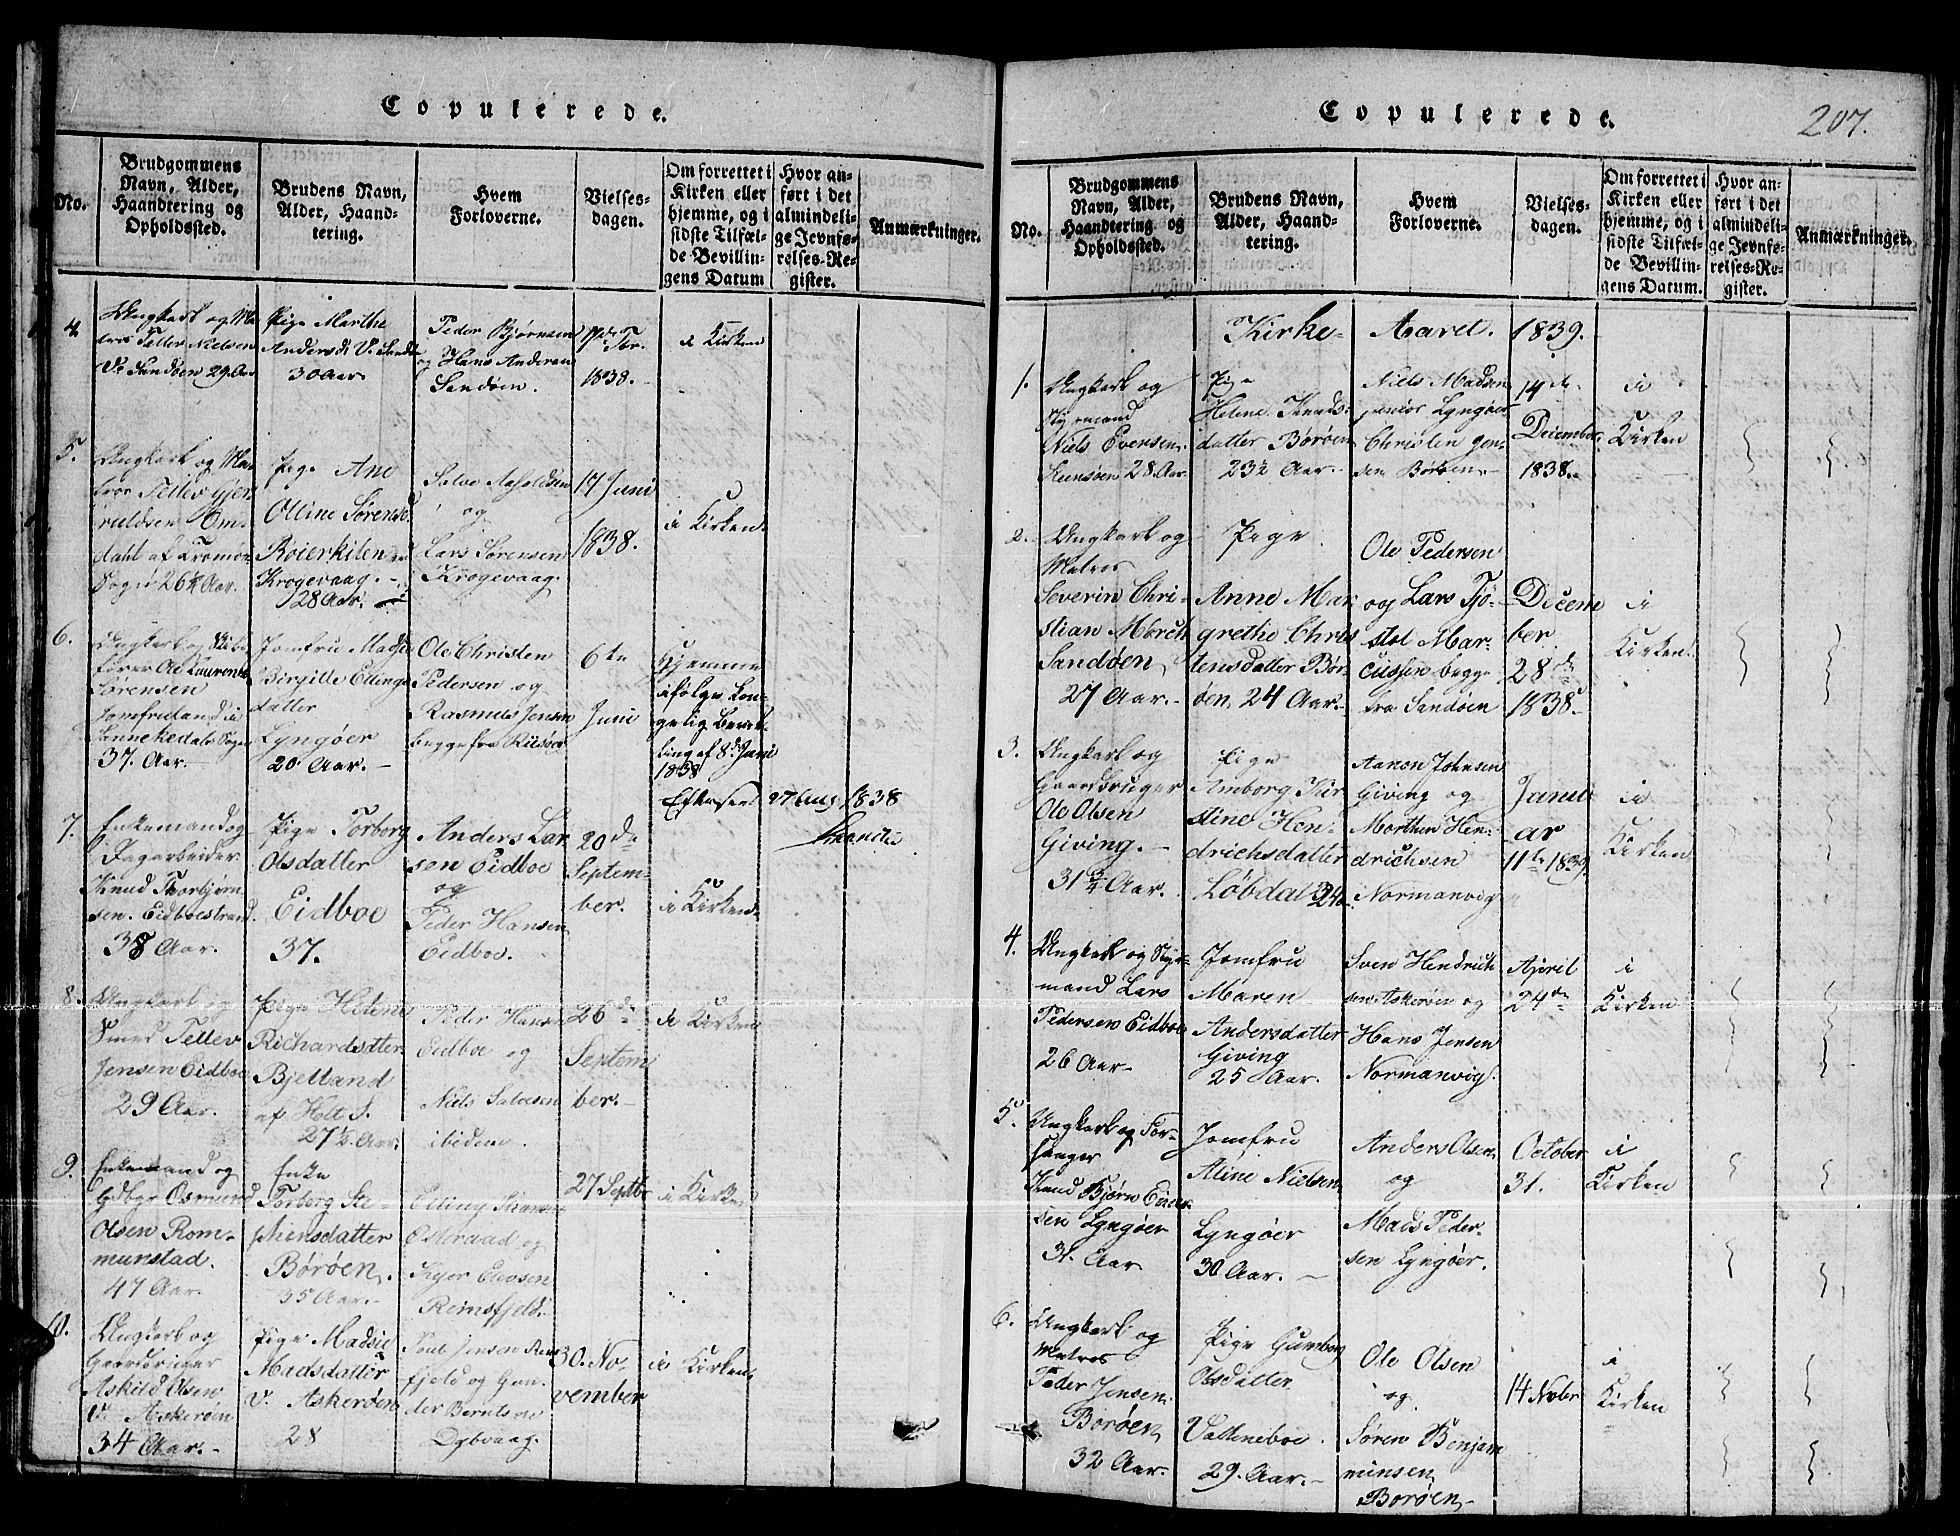 Copulerede.
No.
Brudgommens
Navn, Alder,
Haandtering og
Opholdssted.
Brudens Navn,
Alder, Haand-
tering.
Hvem
Forloverne.
Vielses-
dagen.
Om forrettet i
Kirken eller
hjemme, og i
sidste Tilfæl-
de Bevillin-
gens Datum
Hvor an-
ført i det
almindeli-
ge Jevnfø-
relses-Re-
gister.
Anmærkninger.
4.
Ungkarl og Ma-
tros Tellev Nielsen
Sandøen 29 Aar
Pige Marthe
30 Aar
Peder Bjørnsen
og Hans Andersen
Sandøen.
1838.
i Kirken
5.
Ungkarl og Ma-
tros Tellev
Sogn 26¼ Aar.
Pige Ane
Olline Sørensd.
Røierkilen
Krogevaag.
28 Aar.
og
Lars Sørensen
Krogevaag.
17 Juni
1838.
i Kirken.
6.
Ungkarl og
Sørensen
Jomfruland i
Sannekedals Sogn
37. Aar.
Jomfru Madsie
Birgitte Ellings
datter
Lyngøer
20 Aar.
Ole Christen
Pedersen og
Rasmus Jensen
begge fra Riisøer
6te
Juni
Hjemme
ifølge kon-
gelig Bevil-
ling af 8de Juni
1838
27 Aug 1838
7.
Enkemand og
Dagarbeider
Knud Thorbjørn
sen. Eidboestrand.
38 Aar.
Pige Torborg
Olsdatter
Eidboe
37.
Anders Lar
sen Eidboe
og
Peder Hansen
Eidboe.
20de
Septem-
ber.
i Kirken.
8.
Ungkarl og
Smed Tellev
Jensen Eidboe
29 Aar.
Pige Helene
Richardsdatter
Bjelland
af Holt S.
27½ Aar.
Peder Hansen
Eidboe og
Niels Salvesen
ibidem.
26de
Septem
ber.
i Kirken
9.
Enkemand og
Gdbgr Osmund
Olsen Rom-
munstad.
47 Aar.
Enke
Torborg Ste-
phensdatter
Børøen.
35 Aar.
Osteraad og
Reimsfjeld.
27 Septbr
i Kirken
10.
Ungkarl og
Gaardbruger
Askild Olsen
v. Askerøen
34 Aar.
Pige Madsie
Madsdatter
v. Askerøen
28
fjeld og Gun-
der Berntsen
Dybvaag.
30. No-
vember
i Kirken.
Copulerede.
207.
No.
Brudgommens
Navn, Alder,
Haandtering og
Opholdssted.
Brudens Navn,
Alder, Haand-
tering.
Hvem
Forloverne.
Vielses-
dagen.
Om forrettet i
Kirken eller
hjemme, og i
sidste Tilfæl-
de Bevillin-
gens Datum.
Hvor an-
ført i det
almindeli-
ge Jevnfø-
relses-Re-
gister.
Anmærkninger.
Kirke- Aaret. 1839.
1.
Ungkarl og
Styrmand
Niels Evensen
28 Aar.
Pige
Helene Knuds-
datter Børøen
23½ Aar.
Niels Madsen
junior Lyngøer
Christen Jen-
sen Børøen
14de
December
1838.
i
Kirken
2.
Ungkarl og
Matros
Severin Chri-
stian Mørch
Sandøen,
27 Aar.
Pige
Anne Mar
grethe Chris
tensdatter Bør-
øen, 24 Aar.
Ole Pedersen
og Lars Tjø-
stel Mar-
cussen begge
fra Sandøen
Decem
ber
28de
1838.
i
Kirken.
3.
Ungkarl og
Gaardbruger
Ole Olsen
Giving.
31¾ Aar.
Pige
Amborg Kir
stine Hen-
drichsdatter
Løbdal 24
Aanon Johnsen
Giving og
Morthen Hen-
drichsen
Normanvig
Janu
ar
11te 1839.
i
Kirken
4.
Ungkarl og Styr-
mand Lars
Pedersen Eidboe
26 Aar
Jomfru
Maren
Andersdatter
Giving
25 Aar.
Sven Hendrich
sen Askerøen og
Hans Jensen
Normanvig.
April
24de
i
Kirken
5.
Ungkarl og For-
sanger
Knud Bjørn
sen Lyngøer
31. Aar
Jomfru
Aline Nielsen
Lyngøer
30 Aar.
Anders Olsen
og
Mads Peder-
sen Lyngøer.
October
31.
i
Kirken
6.
Ungkarl og
Matros
Peder Jensen
Borøen
32 Aar.
Pige Gumborg
Olsdatter
Valleneboe.
29. Aar.
Ole Olsen
og
Søren Benjam
minsen
Borøen
14 Novbr
i
Kirken